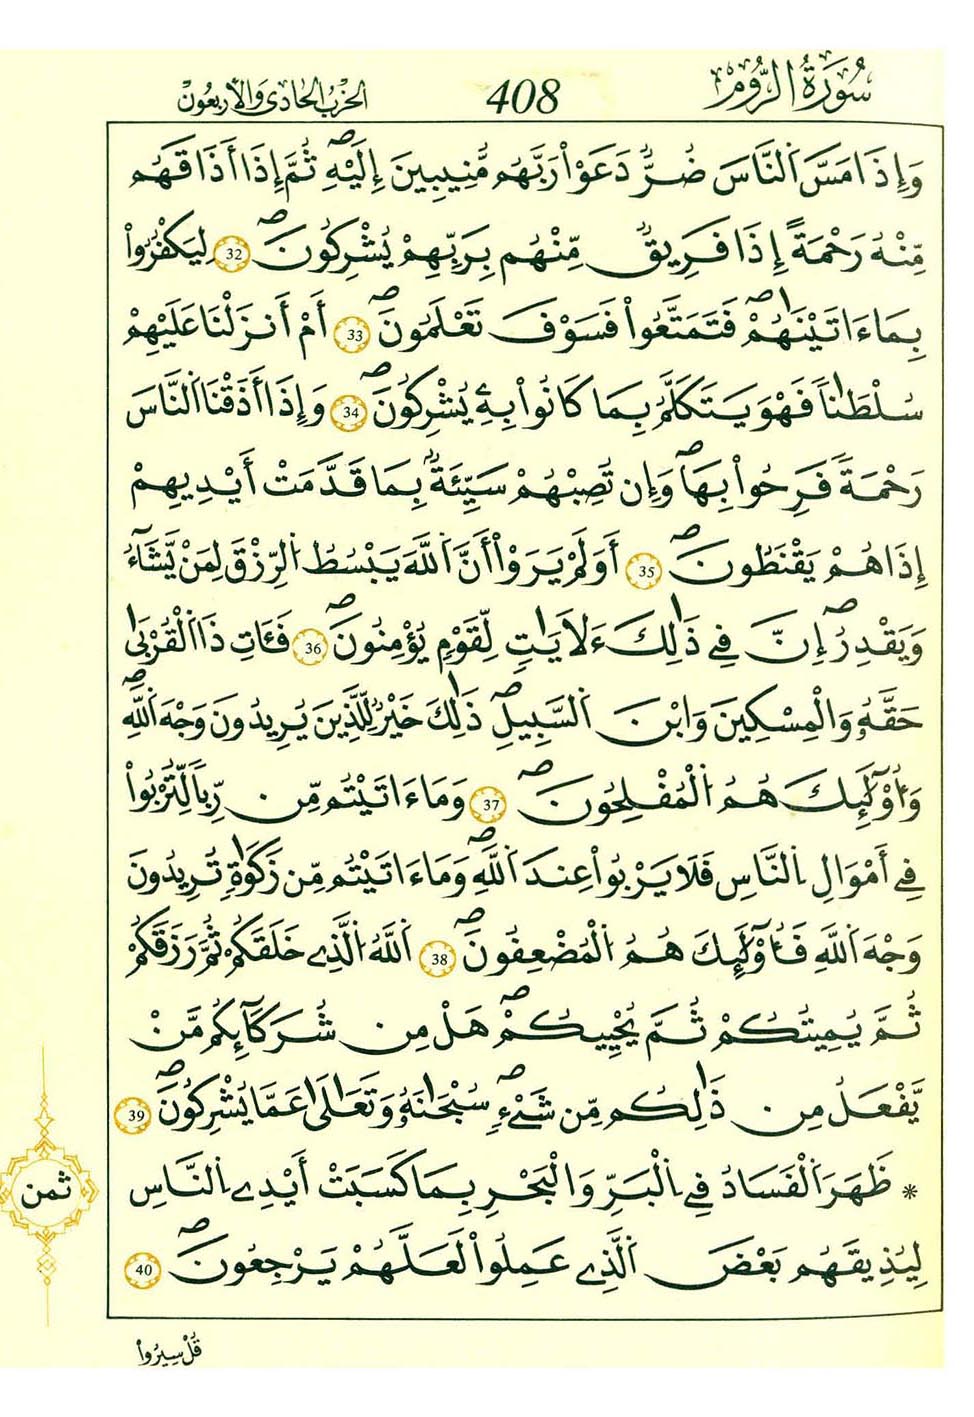 سُورَةُ الرُّومِ 408 الحِزْبُ الحَادِي وَالأَرْبَعُونَ
وَإِذَا مَسَّ اَلنَّاسَ ضُرّٞ دَعَوْاْ رَبَّهُم مُّنِيبِينَ إِلَيْهِۖ ثُمَّ إِذَا أَذَاقَهُم
مِّنْهُ رَحْمَةً إِذَا فَرِيقٞ مِّنْهُم بِرَبِّهِمْ يُشْرِكُونَۖ 32 لِيَكْفُرُواْ
بِمَا ءَاتَيْنَٰهُمْۖ فَتَمَتَّعُواْ فَسَوْفَ تَعْلَمُونَۖ 33 أَمْ أَنزَلْنَا عَلَيْهِمْ
سُلْطَٰناٗ فَهُوَ يَتَكَلَّمُ بِمَا كَانُواْ بِهِۦ يُشْرِكُونَۖ 34 وَإِذَا أَذَقْنَا اَلنَّاسَ
رَحْمَةٗ فَرِحُواْ بِهَاۖ وَإِن تُصِبْهُمْ سَيِّئَةُۢ بِمَا قَدَّمَتْ أَيْدِيهِمْ
إِذَا هُمْ يَقْنَطُونَۖ 35 أَوَلَمْ يَرَوْاْ أَنَّ اَللَّهَ يَبْسُطُ اُلرِّزْقَ لِمَنْ يَّشَآءُ
وَيَقْدِرُۖ إِنَّ فِي ذَٰلِكَ ءَلَايَٰتٖ لِّقَوْمٖ يُؤْمِنُونَۖ 36 فَـَٔاتِ ذَا اَلْقُرْبَىٰ
حَقَّهُۥ وَالْمِسْكِينَ وَابْنَ اَلسَّبِيلِۖ ذَٰلِكَ خَيْرٞ لِّلَّذِينَ يُرِيدُونَ وَجْهَ اَللَّهِۖ
وَأُوْلَٰٓئِكَ هُمُ اُلْمُفْلِحُونَۖ 37 وَمَا ءَاتَيْتُم مِّن رِّباٗ لِّتُرْبُواْ
فِي أَمْوَالِ اِلنَّاسِ فَلَا يَرْبُواْ عِندَ اَللَّهِۖ وَمَا ءَاتَيْتُم مِّن زَكَوٰةٖ تُرِيدُونَ
وَجْهَ اَللَّهِ فَأُوْلَٰٓئِكَ هُمُ اُلْمُضْعِفُونَۖ 38 اَللَّهُ اُلَّذِي خَلَقَكُمْ ثُمَّ رَزَقَكُمْ
ثُمَّ يُمِيتُكُمْ ثُمَّ يُحْيِيكُمْۖ هَلْ مِن شُرَكَآئِكُم مَّنْ
يَّفْعَلُ مِن ذَٰلِكُم مِّن شَيْءٖۖ سُبْحَٰنَهُۥ وَتَعَٰلَىٰ عَمَّا يُشْرِكُونَۖ 39
* ظَهَرَ اَلْفَسَادُ فِي اِلْبَرِّ وَالْبَحْرِ بِمَا كَسَبَتْ أَيْدِي اِلنَّاسِ
ثمن
لِيُذِيقَهُم بَعْضَ اَلَّذِي عَمِلُواْ لَعَلَّهُمْ يَرْجِعُونَۖ 40
قُلْ سِيرُواْ